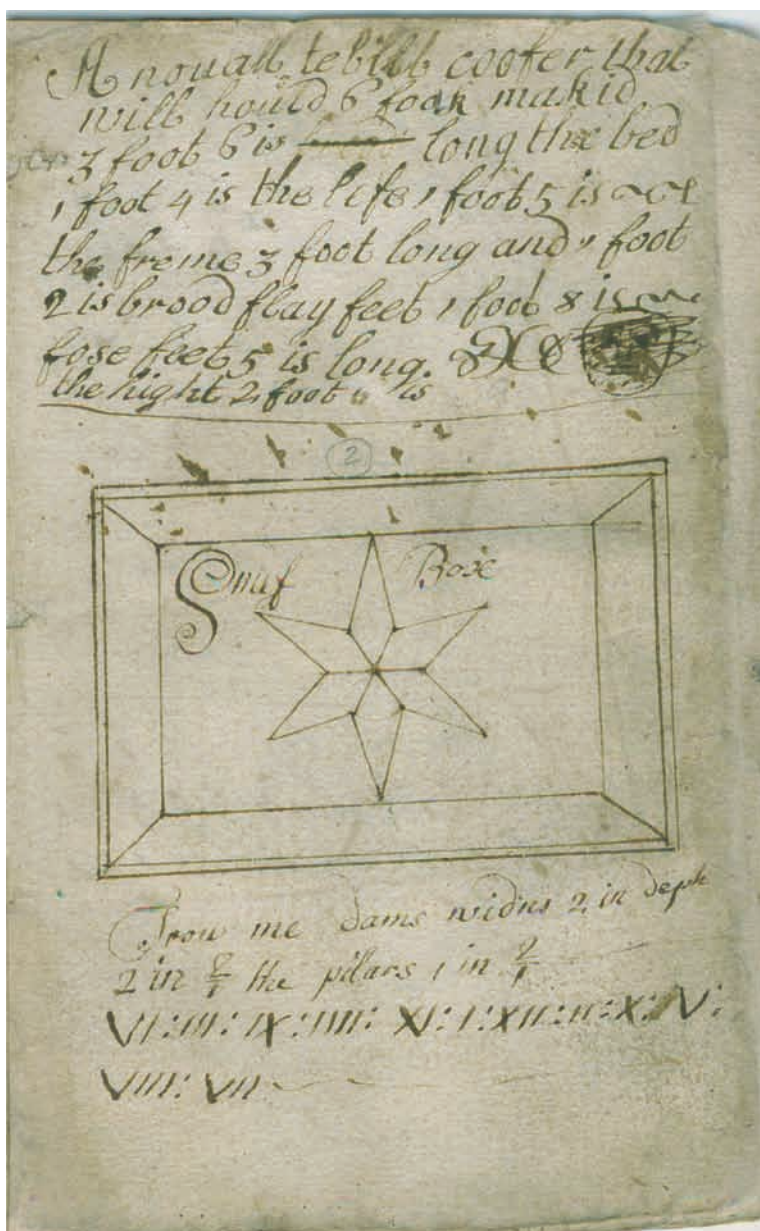 A nouall tebill coofer that
will hould 6 foak makid
3 foot 6 is long the bed
1 foot 4 is the lefe 1 foot 5 is
the freme 3 foot long and 1 foot
2 is brood flay feet 1 foot 8 is
fose feet 5 is long.
the hight 2 foot is
2
Snuf Boxe
Trow me dams widns 2 in deph
2 in 2/1 the pilars 1 in 2/1
VI:III:IX:IIII: XI:I:XII:II:X:V:
VIII: VII